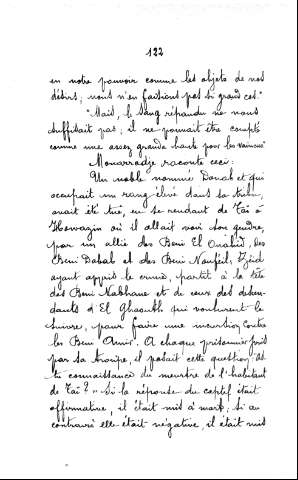 122
en notre pouvoir comme les objets de nos
désirs; nous n'en faisions pas si grand cas."
"Mais, le sang répandu ne nous
suffisait pas; il ne pouvait être compté
comme une assez grande honte pour les vaincus"
Mouarradje raconte ceci:
Un noble nommé Douab et qui
occupait un rang élevé dans la tribu,
avait été tué, en se rendant de Taï à
Hawazin où il allait voir son gendre,
par un allié des Beni El Ouahid, des
Beni Dabab et des Beni Naufeïl. Zeïd
ayant appris le crime, partit à la tête
des Beni Nabhane et de ceux des descen-
dants d'El Ghaouth qui voulurent le
suivre, pour faire une incursion contre
les Beni Amir. A chaque prisonnier fait
par sa troupe, il posait cette question: As
tu connaissance du meurtre de l'habitant
de Taï?" Si la réponse du captif était
affirmative, il était mis à mort; si au
contraire elle était négative, il était mis